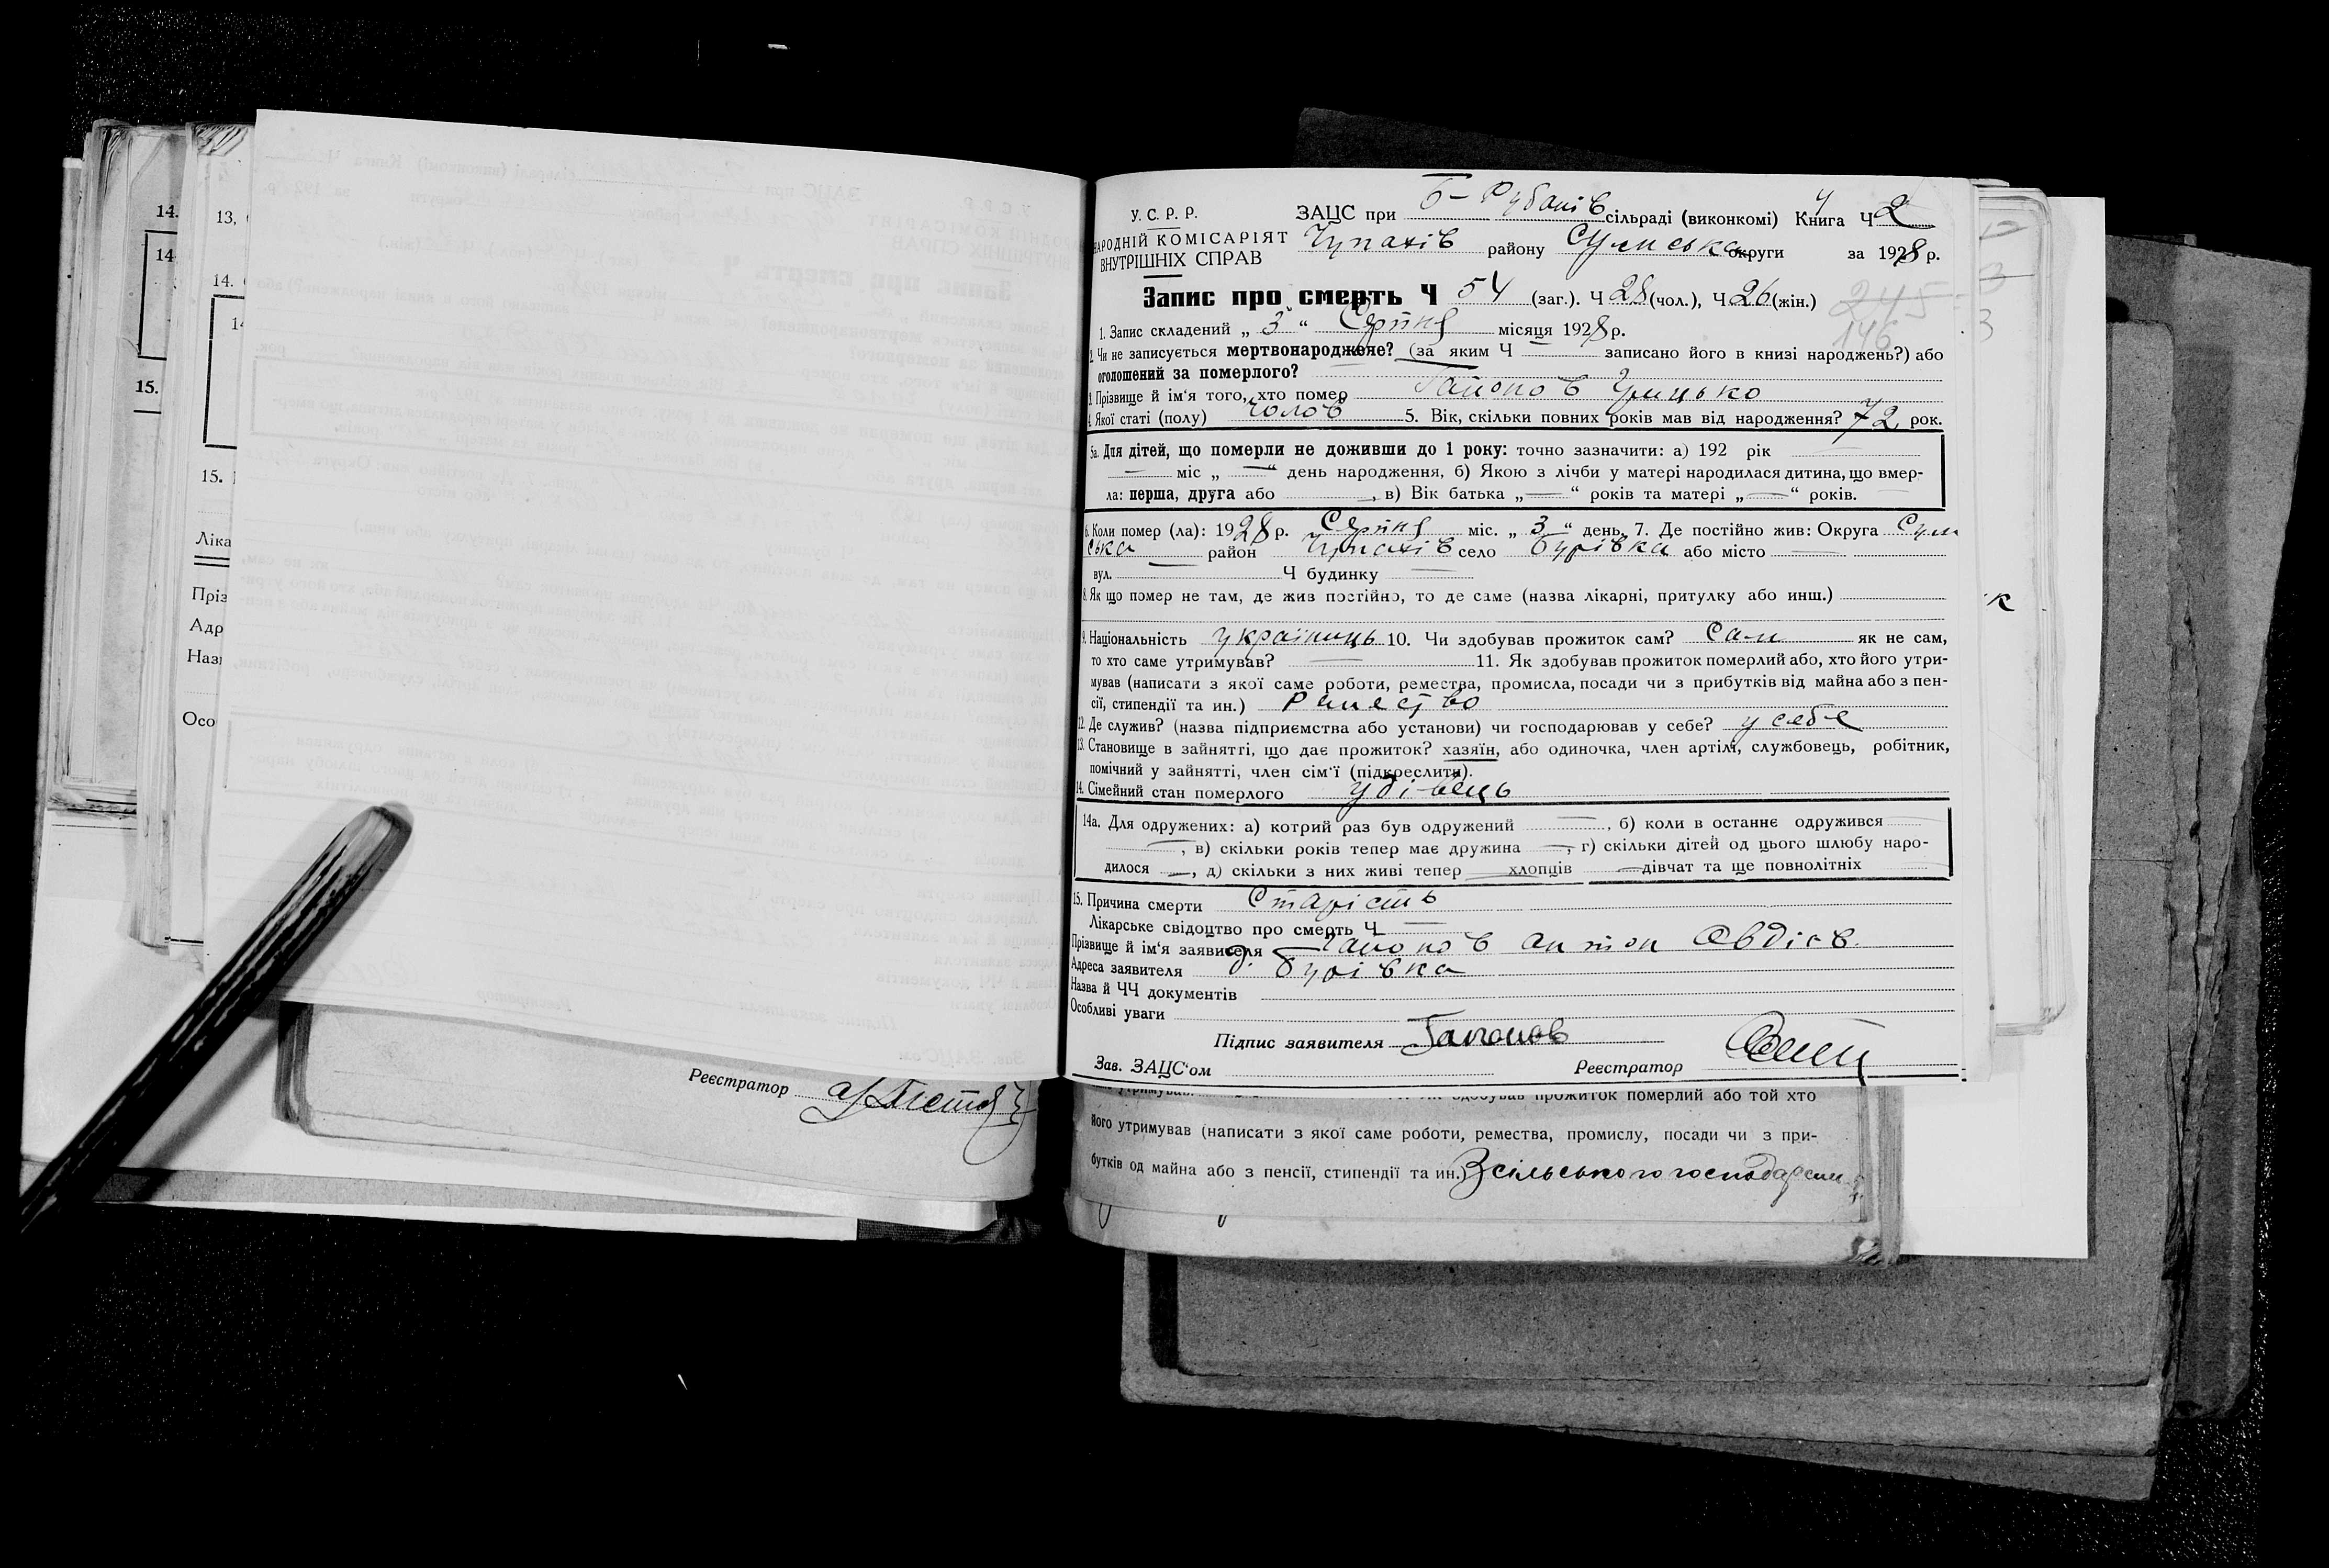 14.
14
15.
13,
14.
14
15.
Ліка
Пріз
Адр
Назв
Осо
Реєстратор
У. С. Р. Р.
НАРОДНІЙ КОМІСАРІЯТ
ВНУТРІШНІХ СПРАВ
ЗАЦС при Б-Рубанів сільраді (виконкомі) Книга Ч 2
Чупахів району Сумська округи за 1928 р.
Запис про смерть Ч 54 (заг.). Ч 28 (чол.), Ч 26 (жін.)
245
146
1. Запис складений „ 3 “ Серпня місяця 1928 р.
2. Чи не записується мертвонароджене? (за яким Ч — записано його в книзі народжень?) або
оголошений за померлого? —
3. Прізвище й ім‘я того, хто помер Гапонов Грицько
4. Якої статі (полу) чолов 5. Вік, скільки повних років мав від народження? 72 рок.
5а. Для дітей, що померли не доживши до 1 року: точно зазначити: а) 192 рік —
— міс „ — “ день народження, б) Якою з лічби у матері народилася дитина, що вмер-
ла: перша, друга або —, в) Вік батька „ — “ років та матері „ — “ років.
6. Коли помер (ла): 1928 р. Серпня міс. „ 3 “ день. 7. Де постійно жив: Округа Сум
ська район Чупахів село Бурівка або місто —
вул. — Ч будинку —
8. Як що помер не там, де жив постійно, то де саме (назва лікарні, притулку або инш.)
9. Національність українець 10. Чи здобував прожиток сам? Сам як не сам,
то хто саме утримував? — 11. Як здобував прожиток померлий або, хто його утри-
мував (написати з якої саме роботи, ремества, промисла, посади чи з прибутків від майна або з пен-
сії, стипендії та ин.)
12. Де служив? (назва підприємства або установи) чи господарював у себе? у себе
13. Становище в зайнятті, що дає прожиток? хазяїн, або одиночка, член артілі, службовець, робітник,
помічний у зайнятті, член сім‘ї (підкреслити).
14. Сімейний стан померлого удівець
14а. Для одружених: а) котрий раз був одружений —, б) коли в останнє одружився —
—, в) скільки років тепер має дружина —, г) скільки дітей од цього шлюбу наро-
дилося —, д) скільки з них живі тепер — хлопців — дівчат та ще повнолітніх
15. Причина смерти Старість
Лікарське свідоцтво про смерть Ч —
Прізвище й ім‘я заявителя Гапонов Антон Овдіев.
Адреса заявителя д. Бурівка
Назва й ЧЧ документів
Особливі уваги
Підпис заявителя Гапонов
Зав. ЗАЦС‘ом Реєстратор
прожиток померлий або той хто
його утримував (написати з якої саме роботи, ремества, промислу, посади чи з при-
бутків од майна або з пенсії, стипендії та ин.) З сільського господарст